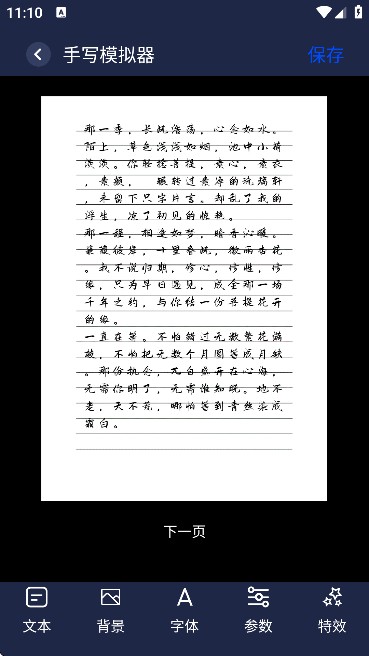 11:10
手写模拟器
保存
那一季，长风浩荡，心念如水。
陌上，草色浅浅如烟，池中小荷
淡淡。你轻捻菩提，素心，素衣
，素颜，
，未留下只字片言。却乱了我的
浮生，凉了初见的惊艳。
那一程，相逢如梦，暗香沁暖。
。我不说归期，修心，修性，修
缘，只为早日遇见，成全那一场
千年之约，与你结一份菩提花开
的缘。
一直在等。不怕错过无数繁花满
枝，不怕把无数个月圆等成月缺
。那份执念，兀自盛开在心海，
无需你明了，无需谁知晓。地不
老，天不荒，哪怕等到青丝染成
霜白。
下一页
文本
背景
字体
参数
特效